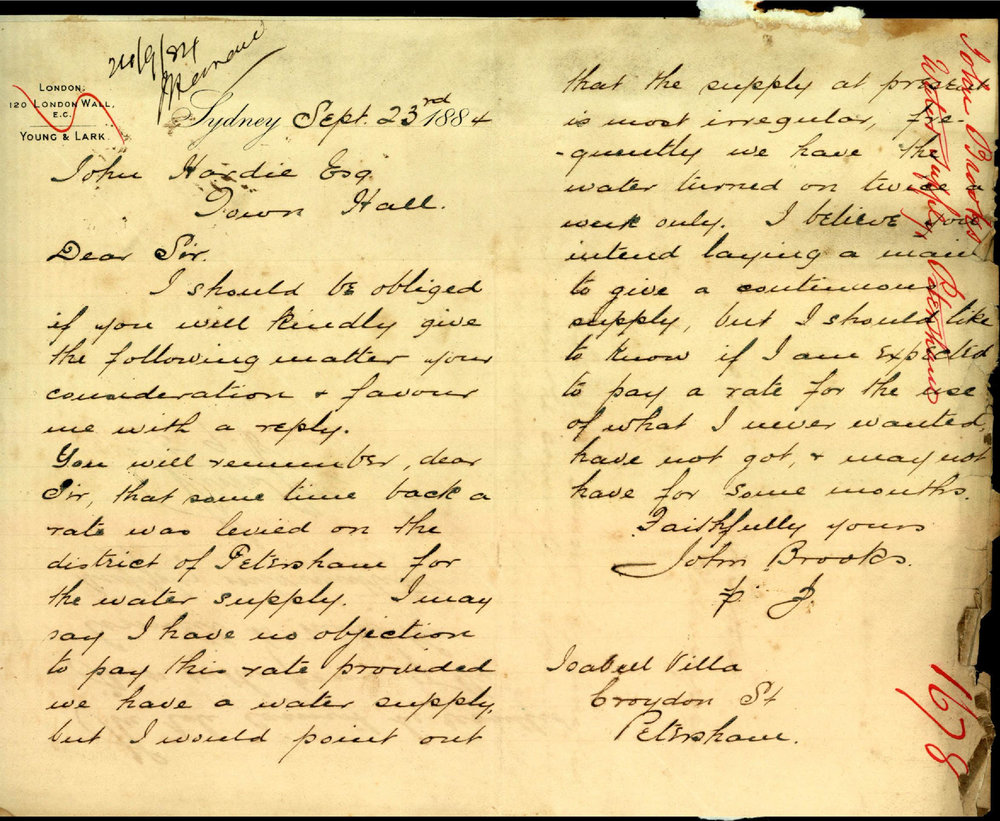 24/9/84
LONDON:
120 LONDON WALL,
E.C.
YOUNG & LARK.
Sydney Sept. 23rd 1884
John Hardie Esq
Town Hall.
Dear Sir.
I should be obliged
if you will kindly give
the following matter your
consideration & favour
me with a reply.
You will remember, dear
Sir, that some time back a
rate was levied on the
district of Petersham for
the water supply. I may
say I have no objection
to pay this rate provided
we have a water supply,
but I would point out
that the supply at present
is most irregular, fre-
-quently we have the
water turned on twice a
week only. I believe you
intend laying a main
to give a continuous
supply, but I should like
to know if I am expected
to pay a rate for the use
of what I never wanted,
have not got, & may not
have for some months.
Faithfully yours
John Brooks.
p J.
Isabell Villa
Croydon St
Petersham.
John Brooks
Water Supply, Petersham
1678